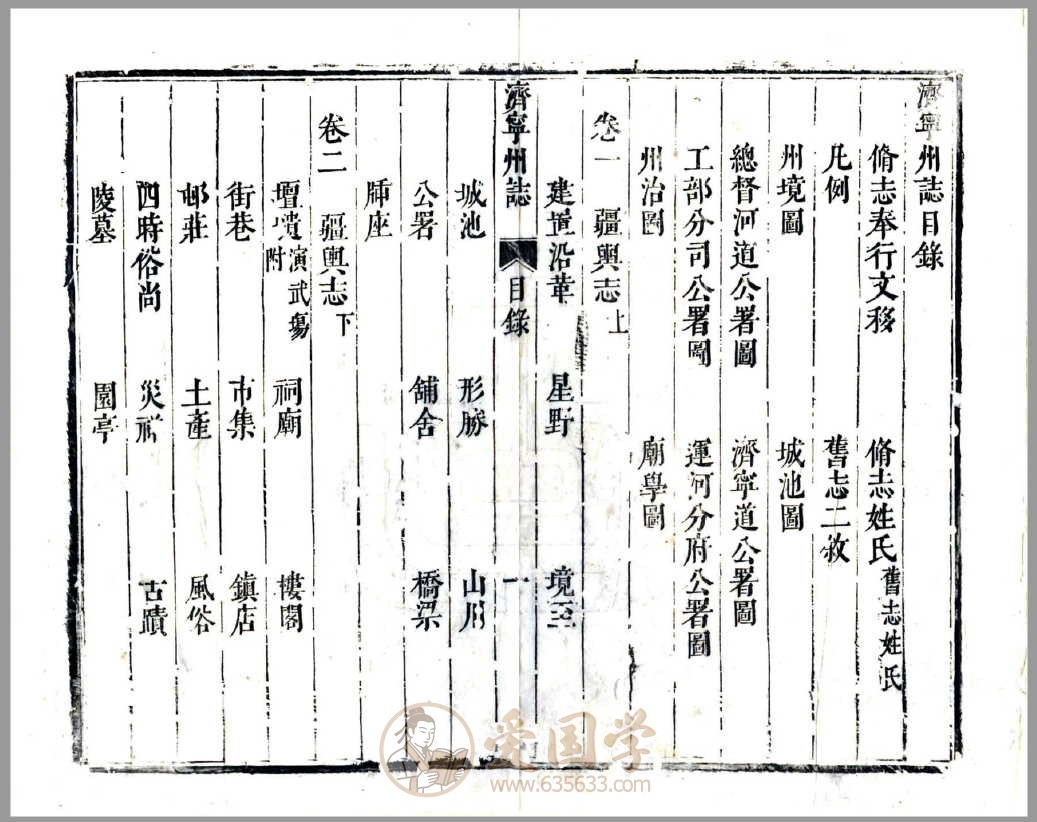 濟寧州誌目錄
脩志奉行文移 脩志姓氏 舊志姓氏
凡例 舊志二敘
州境圖 城池圖
總督河道公署圖 濟寧道公署圖
工部分司公署圖 運河分府公署圖
州治圖 廟學圖
卷一 疆輿志上
建置沿革 星野 境至
濟寧州誌 目錄 一
城池 形勝 山川
公署 舖舍 橋梁
廂座
卷二 疆輿志下
壇壝 附演武場 祠廟 樓閣
街巷 市集 鎮店
邨莊 土產 風俗
四時俗尚 災祥 古蹟
陵墓 園亭
爱国学
www.635633.com